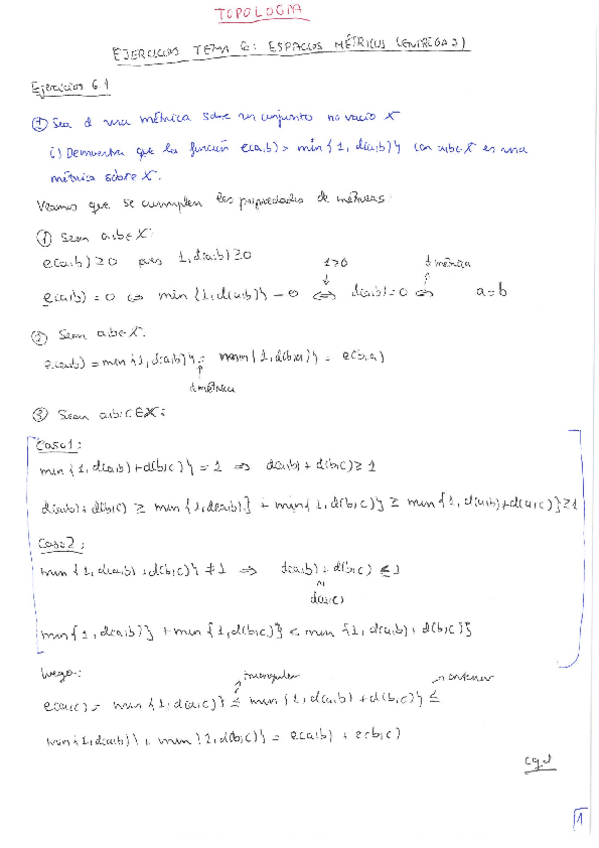 TOPOLOGIA
EJERCICIOS TEMA 6: ESPACIOS MÉTRICOS (ENTREGA 2)
Ejercicios 6.1
② Sea d una métrica sobre un conjunto no vacío X
i) Demuestra que la función e(a,b) = min{1, d(a,b)} con a,b∈X es una
métrica sobre X.
Veamos que se cumplen las propiedades de métricas:
① Sean a,b∈X:
e(a,b) ≥ 0 pues 1, d(a,b) ≥ 0
1>0 d métrica
e(a,b) = 0 ⇔ min{1, d(a,b)} = 0 ⇔ d(a,b) = 0 ⇔ a = b
② Sean a,b∈X:
e(a,b) = min{1, d(a,b)} = min{1, d(b,a)} = e(b,a)
d métrica
③ Sean a,b,c∈X:
Caso 1:
min{1, d(a,b)+d(b,c)} = 1 ⇒ d(a,b) + d(b,c) ≥ 1
d(a,b)+d(b,c) ≥ min{1, d(a,b)} + min{1, d(b,c)} ≥ min{1, d(a,b)+d(a,c)} ≥ 1
Caso 2:
min{1, d(a,b)+d(b,c)} ≠ 1 ⇒ d(a,b) + d(b,c) ≤ 1
d(a,c)
min{1, d(a,b)} + min{1, d(b,c)} < min{1, d(a,b) + d(b,c)}
luego: triangular anterior
e(a,c) = min{1, d(a,c)} ≤ min{1, d(a,b) + d(b,c)} ≤
min{1, d(a,b)} + min{1, d(b,c)} = e(a,b) + e(b,c)
cqd
1